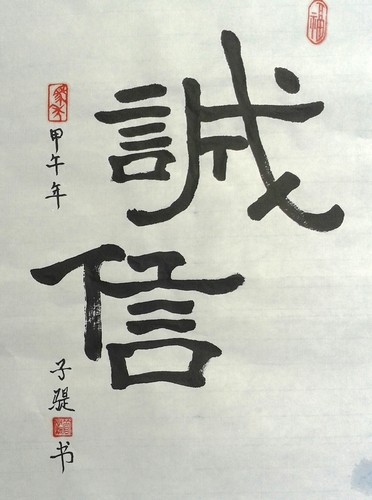 誠信
甲午年
子騠书